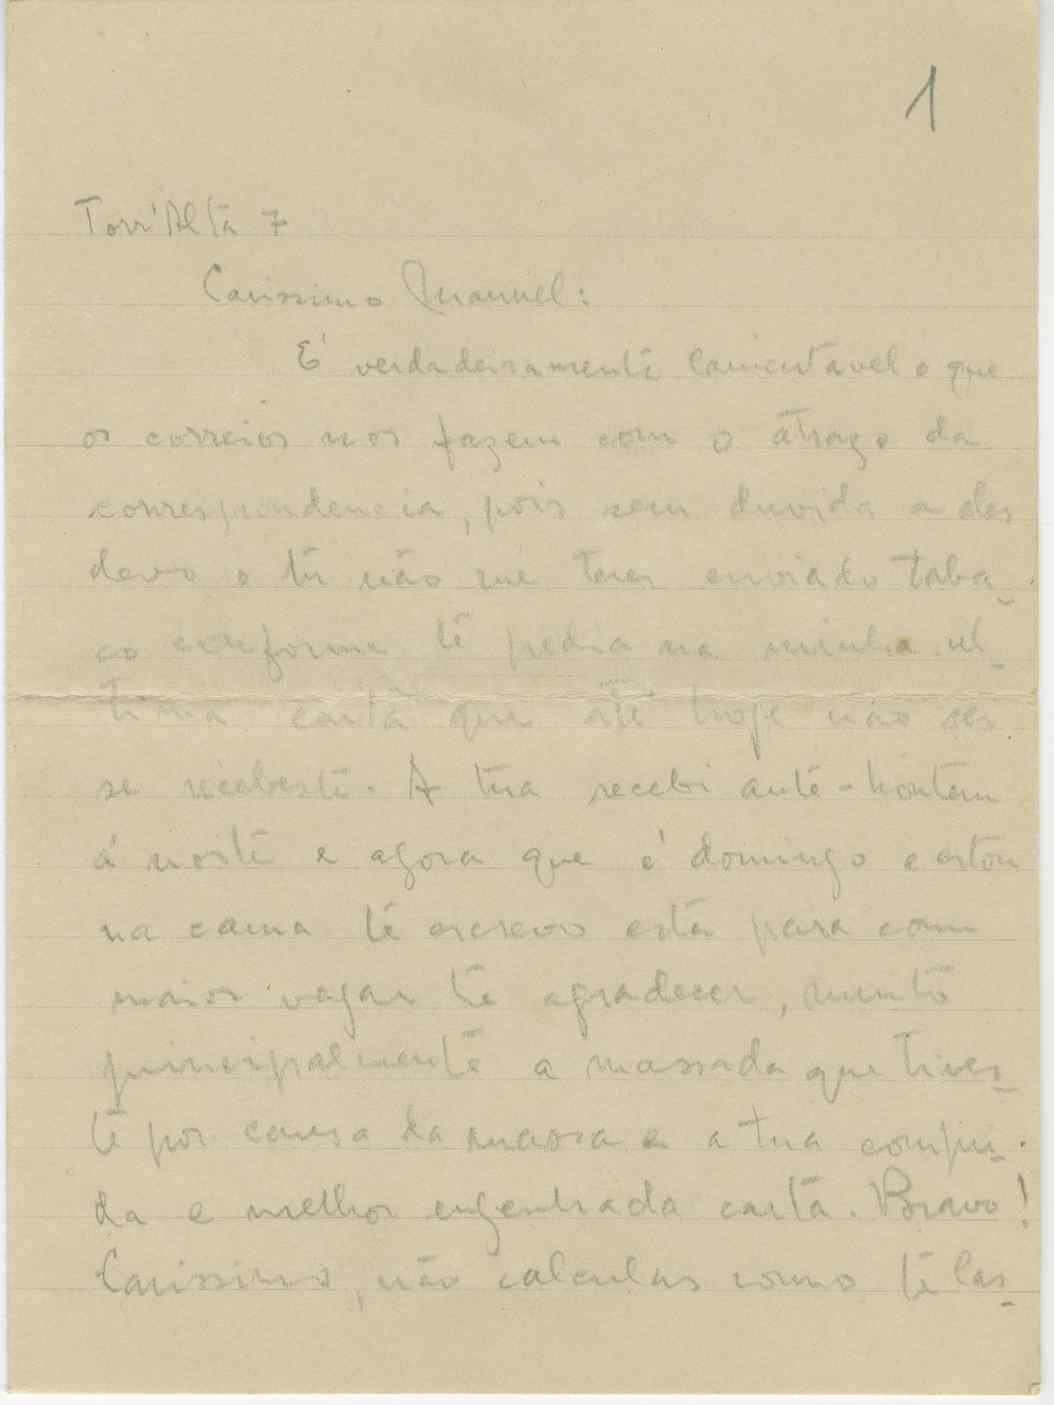 1
Torr'Alta 7
Carissimo Manuel:
É verdadeiramente lamentavel o que
os correios nos fazem com o atrazo da
correspondencia, pois sem duvida a eles
devo o tu não me teres enviado taba-
co conforme te pedia na minha ul-
tima carta que até hoje não sei
se recebeste. A tua recebi ante-hontem
á noite e agora que é domingo e estou
na cama te escrevo esta para com
maior vagar te agradecer, muito
principalmente a massada que tives-
te por causa da massa e a tua compri-
da e melhor engendrada carta. Bravo!
Carissimo, não calculas como te las-